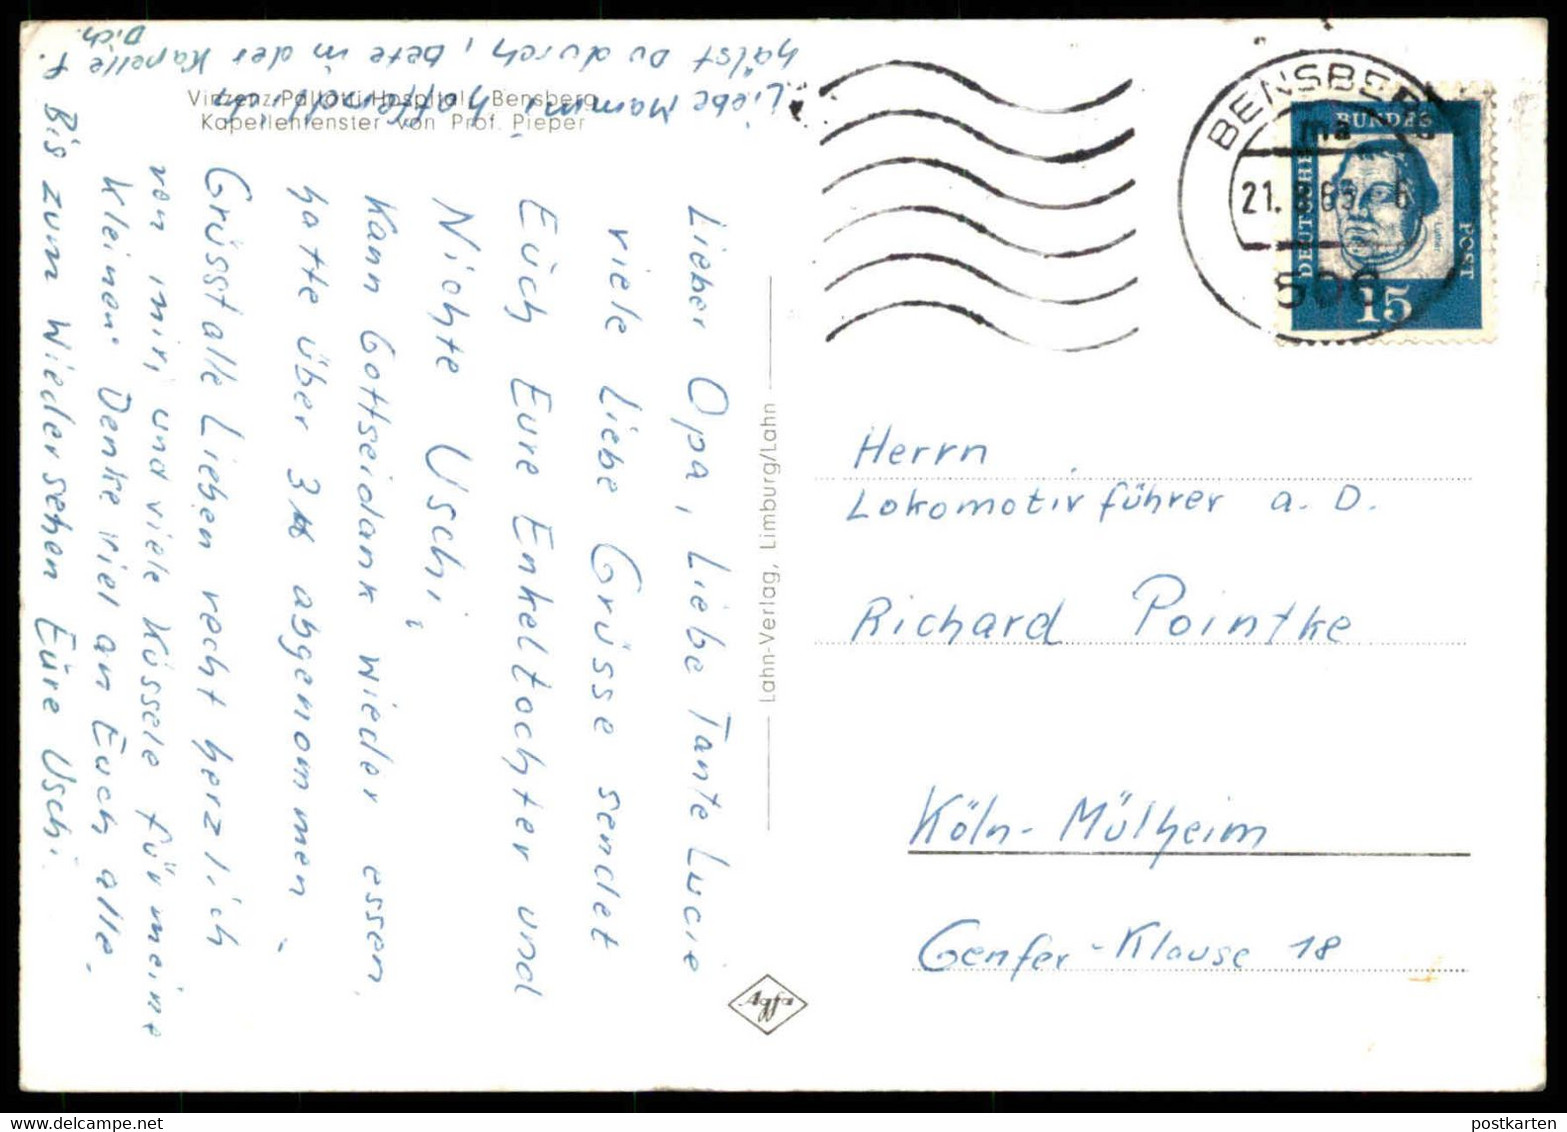 Vinzenz-Pallotti-Hospital, Bensberg
Kapellenfenster von Prof. Pieper
Lieber Opa, Liebe Tante Lucie
viele liebe Grüsse sendet
Euch Eure Enkeltochter und
Nichte Uschi,
Kann Gottseidank wieder essen
hatte über 3 abgenommen,
Grüsst alle Lieben recht herzlich
von mir, und viele Küssele für meine
Kleinen. Denke viel an Euch alle.
Bis zum Wiedersehen Eure Uschi.
Liebe Mamm, hoffentlich
hälst Du durch, bete in der Kapelle f.
Dich.
Lahn-Verlag, Limburg/Lahn
Agfa
BENSBERG
ma
21. 8.63. 6
506
DEUTSCHE
BUNDES
POST
Luther
15
Herrn
Lokomotivführer a. D.
Richard Pointke
Köln-Mülheim
Genfer-Klause 18
postkarten